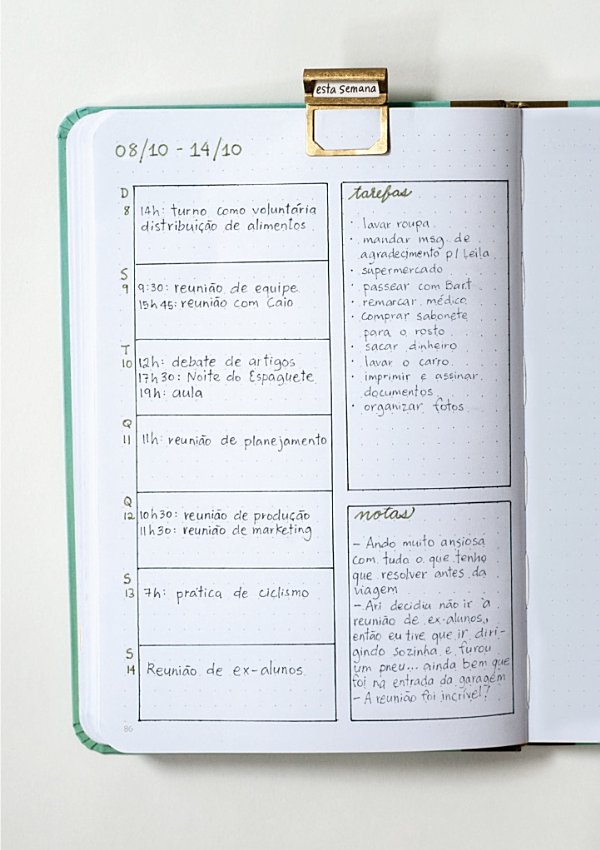 esta semana
08/10 - 14/10
D
8
14h: turno como voluntária
distribuição de alimentos
S
9
9:30: reunião de equipe
15h45: reunião com Caio
T
10
12h: debate de artigos
17h30: Noite do Espaguete
19h: aula
Q
11
11h: reunião de planejamento
Q
12
10h30: reunião de produção
11h30: reunião de marketing
S
13
7h: prática de ciclismo
S
14
Reunião de ex-alunos
86
tarefas
· lavar roupa
· mandar msg de
agradecimento p/ Leila
· supermercado
· passear com Bart
· remarcar médico
· comprar sabonete
para o rosto
· sacar dinheiro
· lavar o carro
· imprimir e assinar
documentos
· organizar fotos
notas
- Ando muito ansiosa
com tudo o que tenho
que resolver antes da
viagem
- Ari decidiu não ir à
reunião de ex-alunos,
então eu tive que ir diri-
gindo sozinha e furou
um pneu... ainda bem que
foi na entrada da garagem
- A reunião foi incrível!